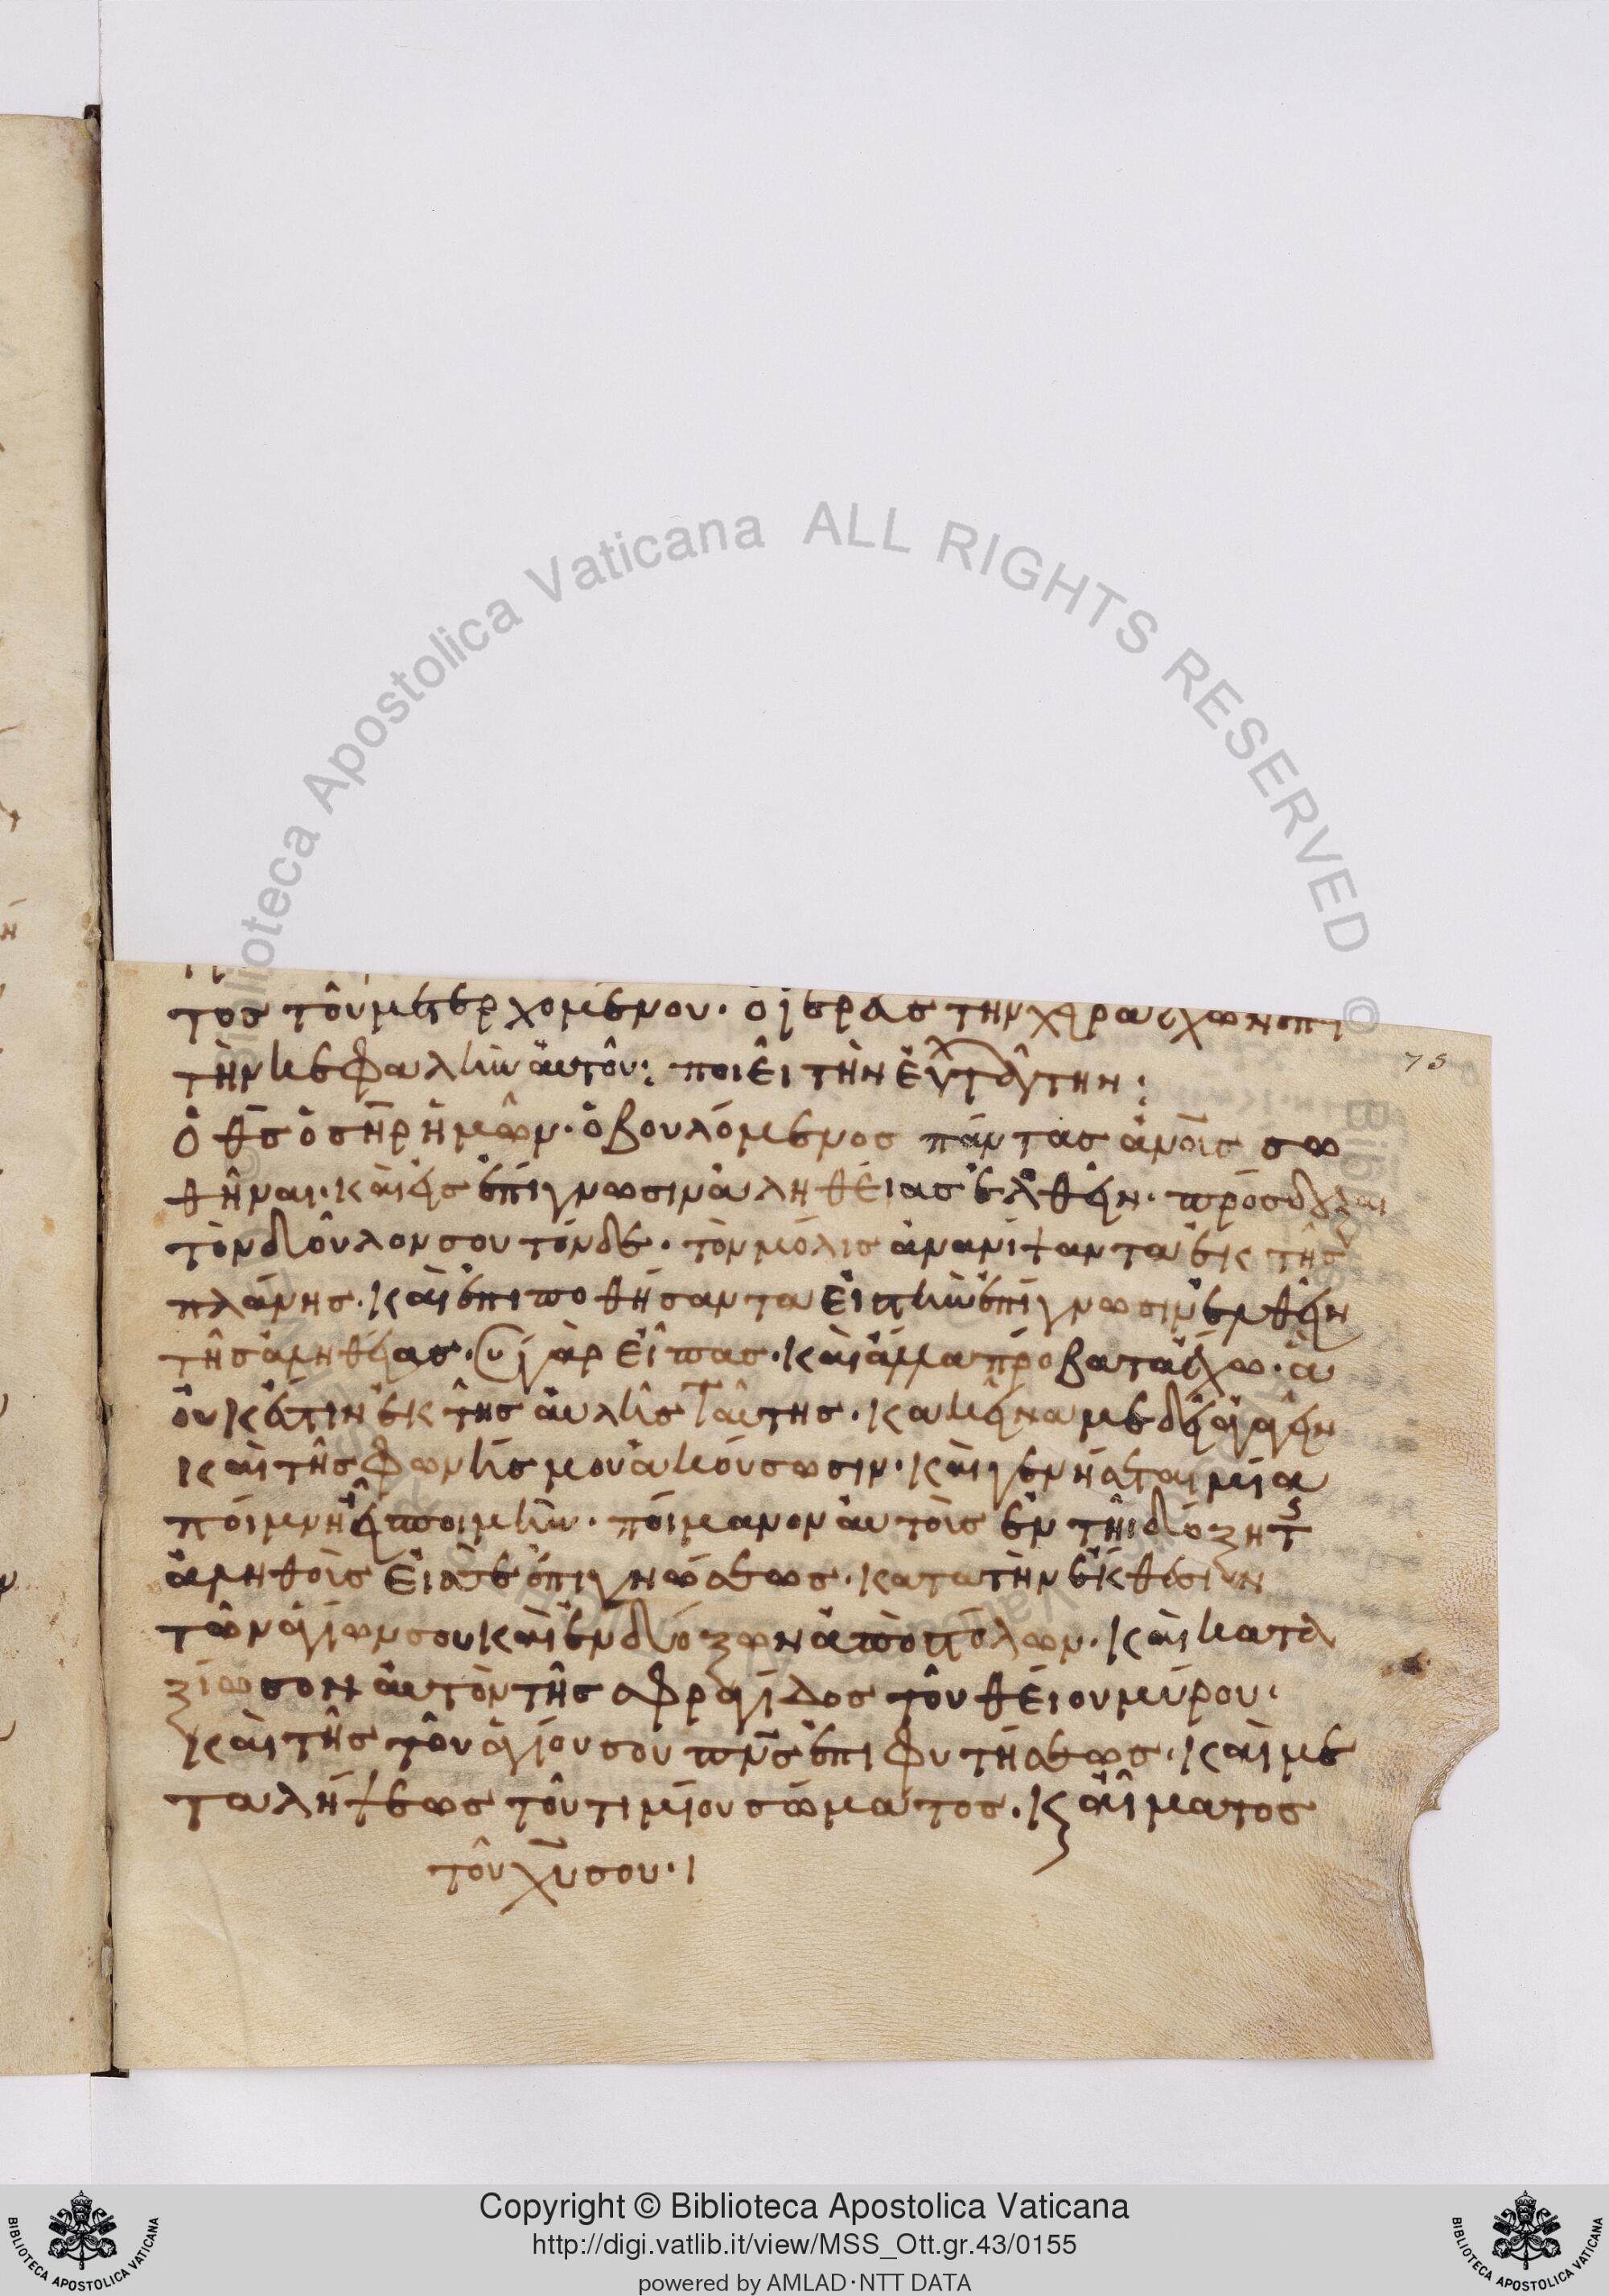 τος τοῦ μετερχομένου· ὁ ἱερεὺς τὴν χεῖρα ἔχων ἐπὶ
τὴν κεφαλὴν αὐτοῦ· ποιεῖ τὴν εὐχ ταύτην·
ὁ θς ὁ σηρ ἡμῶν· ὁ βουλόμενος πάντας ἀνοις σω
θῆναι· καὶ εἰς ἐπίγνωσιν ἀληθείας ἐλθεῖν· πρόσδεξαι
τὸν δοῦλον σου τόνδε· τὸν μόλις ἀνανίψαντα ἐκ τῆς
πλάνης· καὶ ἐπιποθήσαντα εἰς τὴν ἐπίγνωσιν ἐλθεῖν
τῆς ἀληθείας· σὺ γὰρ εἶπας· καὶ ἄλλα πρόβατα ἔχω· ἃ
οὐκ ἔστιν ἐκ τῆς αὐλῆς ταύτης· κακεῖνα με δεῖ ἀγαγεῖν
καὶ τῆς φωνῆς μου ἀκούσωσιν· καὶ γενήσεται μία
ποίμνη εἷς ποιμήν· ποίμανον αὐτὸν ἐν τῆι δόξη τ
ἀληθοῦς εἰς σε ἐπιγνώσεως· κατὰ τὴν ἔκθεσιν
τῶν ἁγίων σου καὶ ἐνδόξων ἀποστόλων· καὶ κατα
ξίωσον αὐτὸν τῆς σφραγίδος τοῦ θείου μύρου·
καὶ τῆς τοῦ ἁγίου σου πνς ἐπιφυτήσεως· καὶ με
ταλήψεως τοῦ τιμίου σώματος· κ αἵματος
τοῦ χυ σου·
75
© Biblioteca Apostolica Vaticana ALL RIGHTS RESERVED ©
Copyright © Biblioteca Apostolica Vaticana
http://digi.vatlib.it/view/MSS_Ott.gr.43/0155
powered by AMLAD·NTT DATA
BIBLIOTECA APOSTOLICA VATICANA
BIBLIOTECA APOSTOLICA VATICANA